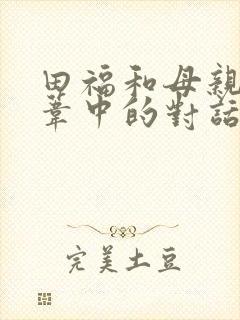 田福和母親
葦中的對話
完美土豆